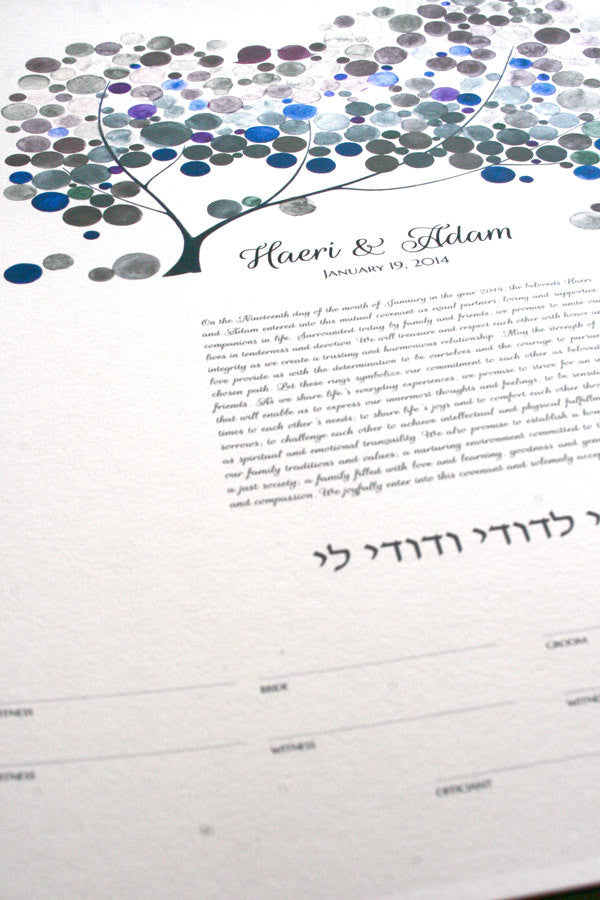 Haeri & Adam
January 19, 2014
On the Nineteenth day of the month of January in the year 2014, the beloveds Haeri
and Adam entered into this mutual covenant as equal partners, loving and supportive
companions in life. Surrounded today by family and friends, we promise to unite our
lives in tenderness and devotion We will treasure and respect each other with honor an
integrity as we create a trusting and harmonious relationship. May the strength of
love provide us with the determination to be ourselves and the courage to pursue
chosen path. Let these rings symbolize our commitment to each other as beloved
friends. As we share life's everyday experiences, we promise to strive for an in
that will enable us to express our innermost thoughts and feelings; to be sensiti
times to each other's needs; to share life's joys and to comfort each other thro
sorrows; to challenge each other to achieve intellectual and physical fulfillm
as spiritual and emotional tranquility. We also promise to establish a hom
our family traditions and values; a nurturing environment committed to t
a just society; a family filled with love and learning, goodness and gene
and compassion. We joyfully enter into this covenant and solemnly accep
י לדודי ודודי לי
GROOM
BRIDE
ITNESS
WITNE
WITNESS
ITNESS
OFFICIANT